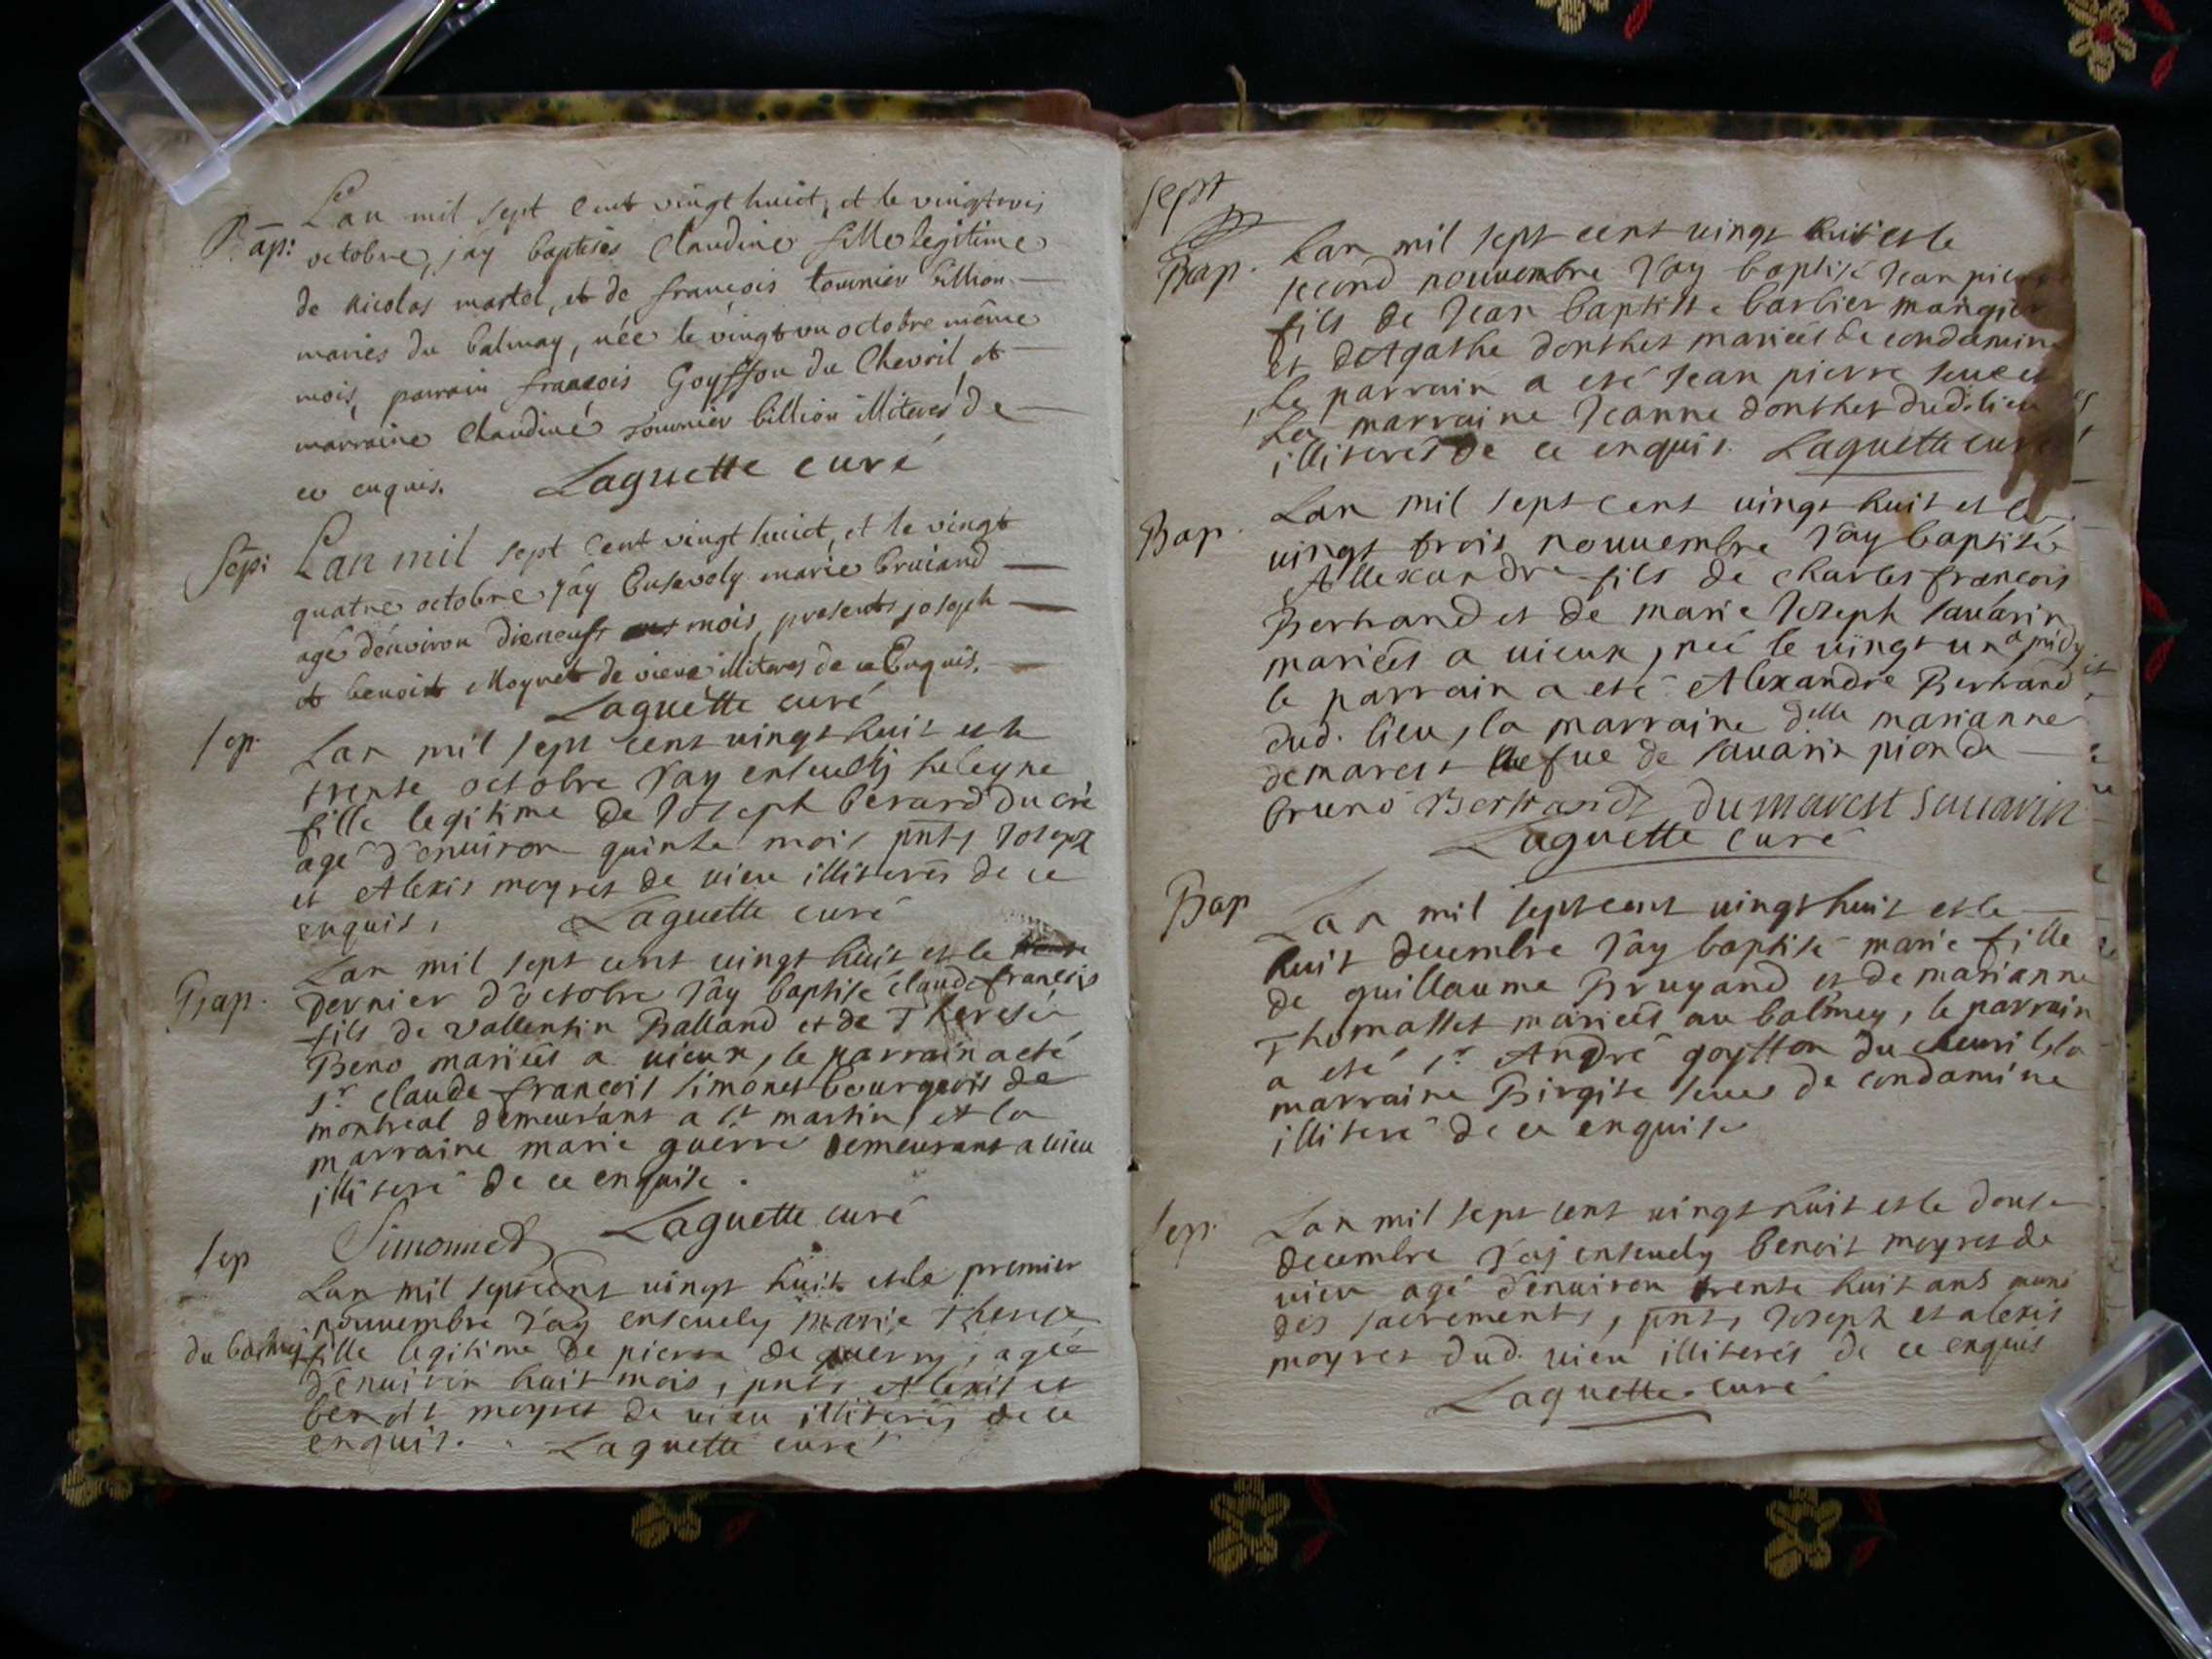 Bap: Lan mil sept cent vingt huict, et le vingtrois
octobre, jay baptisés Claudine fille legitime
de Nicolas martel, et de francois tournier billion
mariés du balmay, née le vingt un octobre même
mois, parrain francois Goyffon du Chevril et
marraine Claudine tournier billion illiteres de
ce enquis. Laguette curé
Sep: Lan mil sept cent vingt huict, et le vingt
quatre octobre jay Ensevely marie bruiand
agé denviron dieneuf mois, presents joseph
et benoist Moynet de vieu illiteres de ce Enquis.
Laguette curé
Sep. Lan mil sept cent vingt huit et le
trente octobre Jay ensevely heleyne
fille legitime de Joseph berard du cré
agé d'enuiron quinse mois pnts Joseph
et Alexis moyret de uieu illiterés de ce
enquis, Laguette curé
Bap. Lan mil sept cent uingt huit et le
dernier d'octobre Jay baptisé claude francois
fils de vallentin Balland et de Therese
Beno mariés a uieux, le parrain a eté
sr claude francois simonet bourgeois de
montreal demeurant a st martin, et la
marraine marie guerre demeurant a uieu
illiteré de ce enquise.
Simonned Laguette curé
Sep Lan mil sept cent uingt huit et le premier
nouuembre Jay enseuely marie Therese
fille legitime de pierre de querry, agée
d'enuiron huit mois, pnts Alexis et
benoit moyret de uieu illiterés de ce
enquis. Laguette curé
Sept
Bap. Lan mil sept cent uingt huit et le
second nouuembre Jay baptisé Jean pierre
fils de Jean baptiste barbier mangier
et d'Agathe donthet mariés de condamine
le parrain a eté Jean pierre
La marraine Jeanne donthet dud. lieu
illiterés de ce enquis. Laguette curé
Bap. Lan mil sept cent uingt huit et le
uingt trois nouuembre Jay baptisé
Allexandre fils de charles francois
Bertrand et de marie Joseph sauarin
mariés a uieux, né le uingt un a midy
le parrain a eté Alexandre Bertrand
dud. lieu, la marraine dlle marianne
demarest uefue de sauarin pion de
bruno Bertrand dumarest Sauarin
Laguette curé
Bap Lan mil sept cent uingt huit et le
huit decembre Jay baptisé marie fille
de guillaume Bruyand et de marianne
Thomasset mariés au balmey, le parrain
a eté sr André goyffon du cheuril, la
marraine Birgite de condamine
illiteré de ce enquise
Sep. Lan mil sept cent uingt huit et le douse
decembre Jaj enseuely benoit moyret de
uieu agé d'enuiron trente huit ans muni
des sacrements, pnts Joseph et alexis
moyret dud. uieu illiterés de ce enquis
Laguette curé